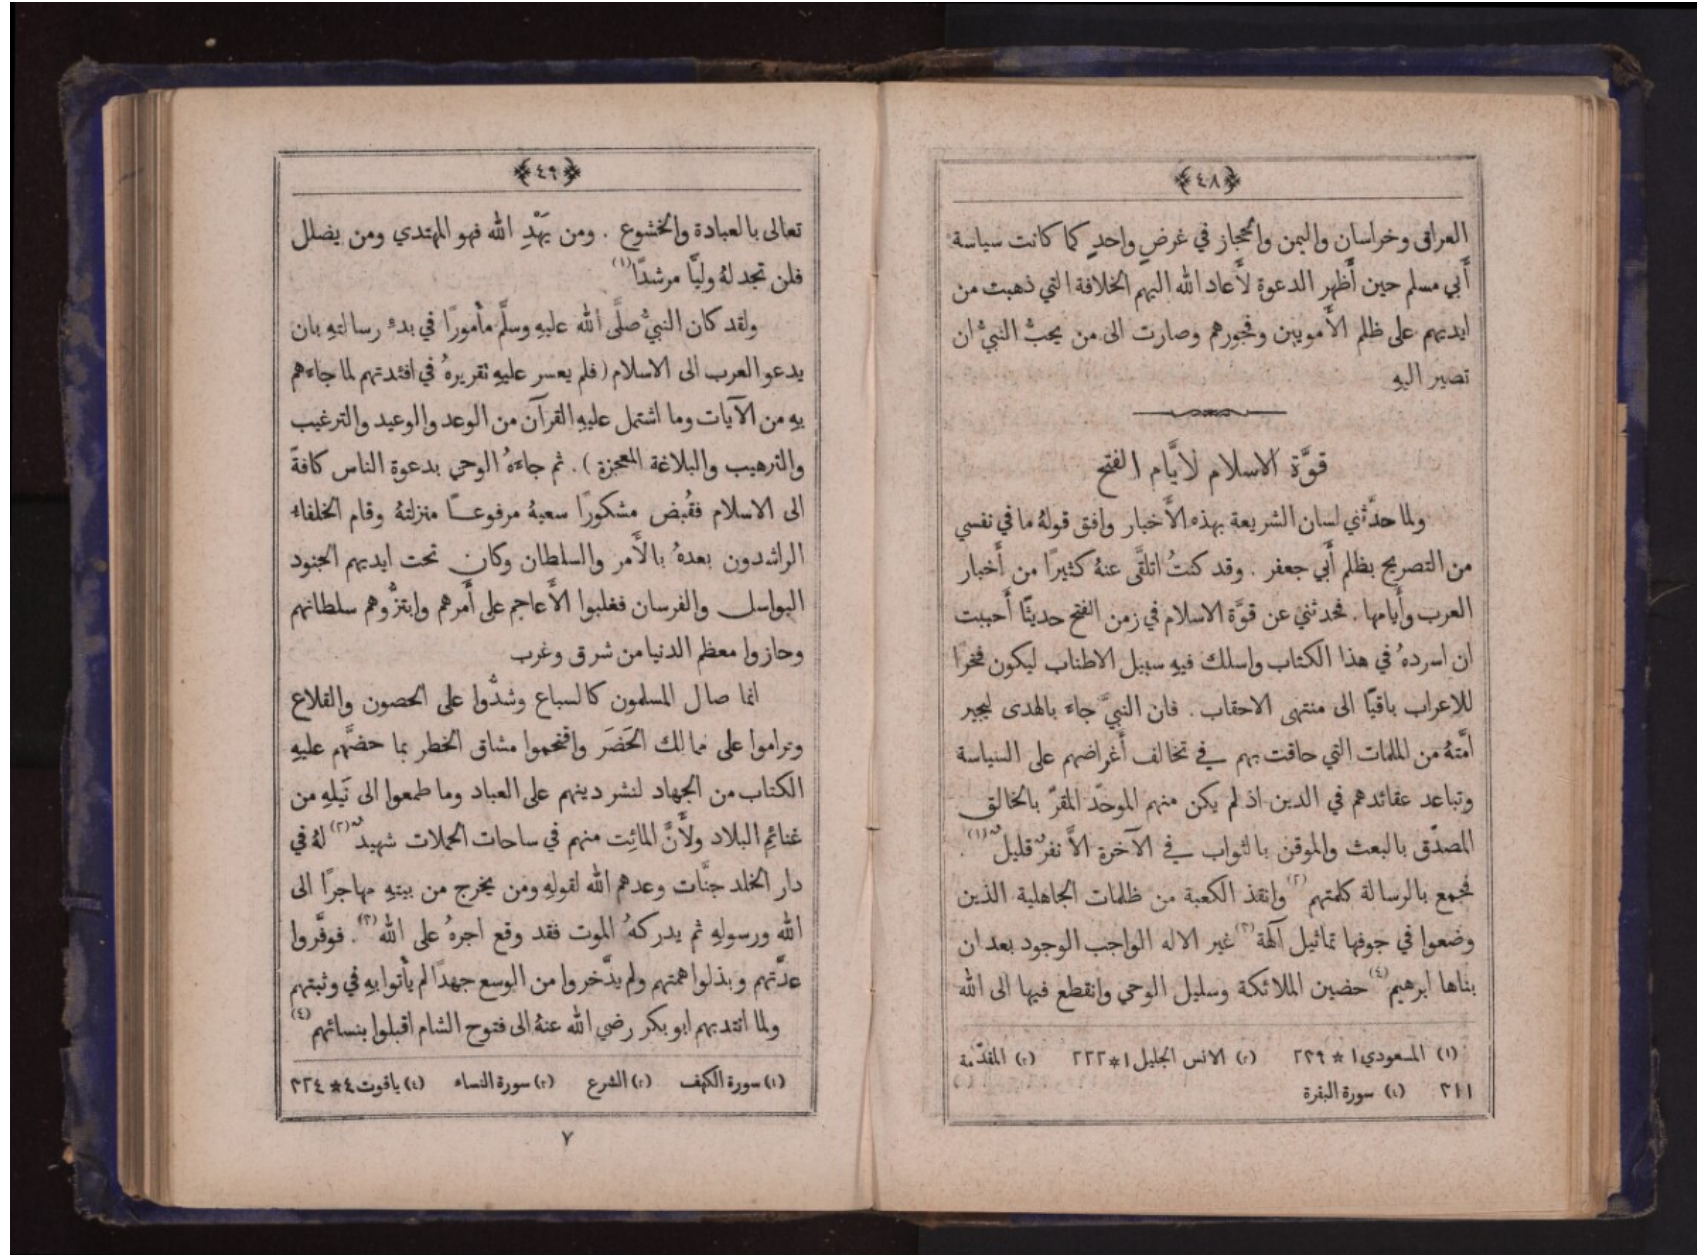 ﴿٤٨﴾
العراق وخراسان واليمن والحجاز في غرضٍ واحدٍ كما كانت سياسة
أَبي مسلم حين أَظهر الدعوة لأَعاد الله اليهم الخلافة التي ذهبت من
ايديهم على ظلم الأُمويين وفجورهم وصارت الى من يحبُّ النبيُّ ان
تصير اليهِ
قوَّة الاسلام لأَيَّام الفتح
ولما حدَّثني لسان الشريعة بهذه الأَخبار وافق قولهُ ما في نفسي
من التصريح بظلم أَبي جعفر . وقد كنتُ اتلقَّى عنهُ كثيرًا من أَخبار
العرب وأَيامها . فحدثني عن قوَّة الاسلام في زمن الفتح حديثًا أَحببت
ان اسردهُ في هذا الكتاب واسلك فيهِ سبيل الاطناب ليكون فخرًا
للاعراب باقيًا الى منتهى الاحقاب . فان النبيَّ جاءَ بالهدى ليجير
امَّتهُ من الملمات التي حاقت بهم في تخالف أَغراضهم على السياسة
وتباعد عقائدهم في الدين اذ لم يكن منهم الموحّد المقرّ بالخالق
المصدّق بالبعث والموقن بالثواب في الآخرة الاَّ نفرٌ قليلٌ (١) .
فجمع بالرسالة كلمتهم (٢) وانقذ الكعبة من ظلمات الجاهلية الذين
وضعوا في جوفها تماثيل آلهة (٣) غير الاله الواجب الوجود بعد ان
بناها ابرهيم (٤) حضين الملائكة وسليل الوحي وانقطع فيها الى الله
(١) المسعودي ١ * ٢٣٩ (٢) الانس الجليل ١ * ٢٢٢ (٣) المقدّمة
٣١١ (٤) سورة البقرة
﴿٤٩﴾
تعالى بالعبادة والخشوع . ومن يَهْدِ الله فهو المهتدي ومن يضلل
فلن تجد لهُ وليًّا مرشدًا (١)
ولقد كان النبيُّ صلَّى الله عليهِ وسلَّم مأمورًا في بدءِ رسالتهِ بان
يدعو العرب الى الاسلام (فلم يعسر عليهِ تقريرهُ في افئدتهم لما جاءهم
بهِ من الآيات وما اشتمل عليهِ القرآن من الوعد والوعيد والترغيب
والترهيب والبلاغة المعجزة) . ثم جاءهُ الوحي بدعوة الناس كافةً
الى الاسلام فقُبض مشكورًا سعيهُ مرفوعًا منزلتهُ وقام الخلفاءُ
الراشدون بعدهُ بالأَمر والسلطان وكان تحت ايديهم الجنود
البواسل والفرسان فغلبوا الأَعاجم على أَمرهم وابتزُّوهم سلطانهم
وحازوا معظم الدنيا من شرق وغرب
انما صال المسلمون كالسباع وشدُّوا على الحصون والقلاع
وتراموا على ممالك الحَضَر واقتحموا مشاق الخطر بما حضَّهم عليهِ
الكتاب من الجهاد لنشر دينهم على العباد وما طمعوا الى نَيلهِ من
غنائم البلاد ولأَنَّ المائِت منهم في ساحات الحملات شهيدٌ (٢) لهُ في
دار الخلد جنَّات وعدهم الله لقولهِ ومن يخرج من بيتهِ مهاجرًا الى
الله ورسولهِ ثم يدركهُ الموت فقد وقع اجرهُ على الله (٣) . فوفَّروا
عدَّتهم وبذلوا همتهم ولم يدَّخروا من الوسع جهدًا لم يأتوا بهِ في وثبتهم
ولما انتدبهم ابو بكر رضي الله عنهُ الى فتوح الشام اقبلوا بنسائهم (٤)
(١) سورة الكهف (٢) الشرع (٣) سورة النساء (٤) ياقوت ٤ * ٣٢٤
٧